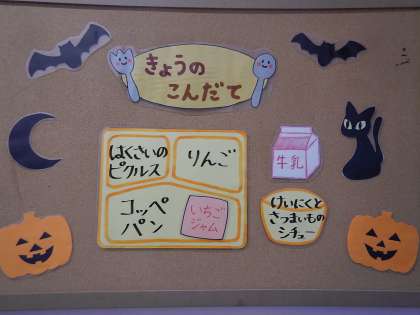 きょうの
こんだて
はくさいの
ピクルス
りんご
コッペ
パン
いちご
ジャム
牛乳
けいにくと
さつまいもの
シチュー